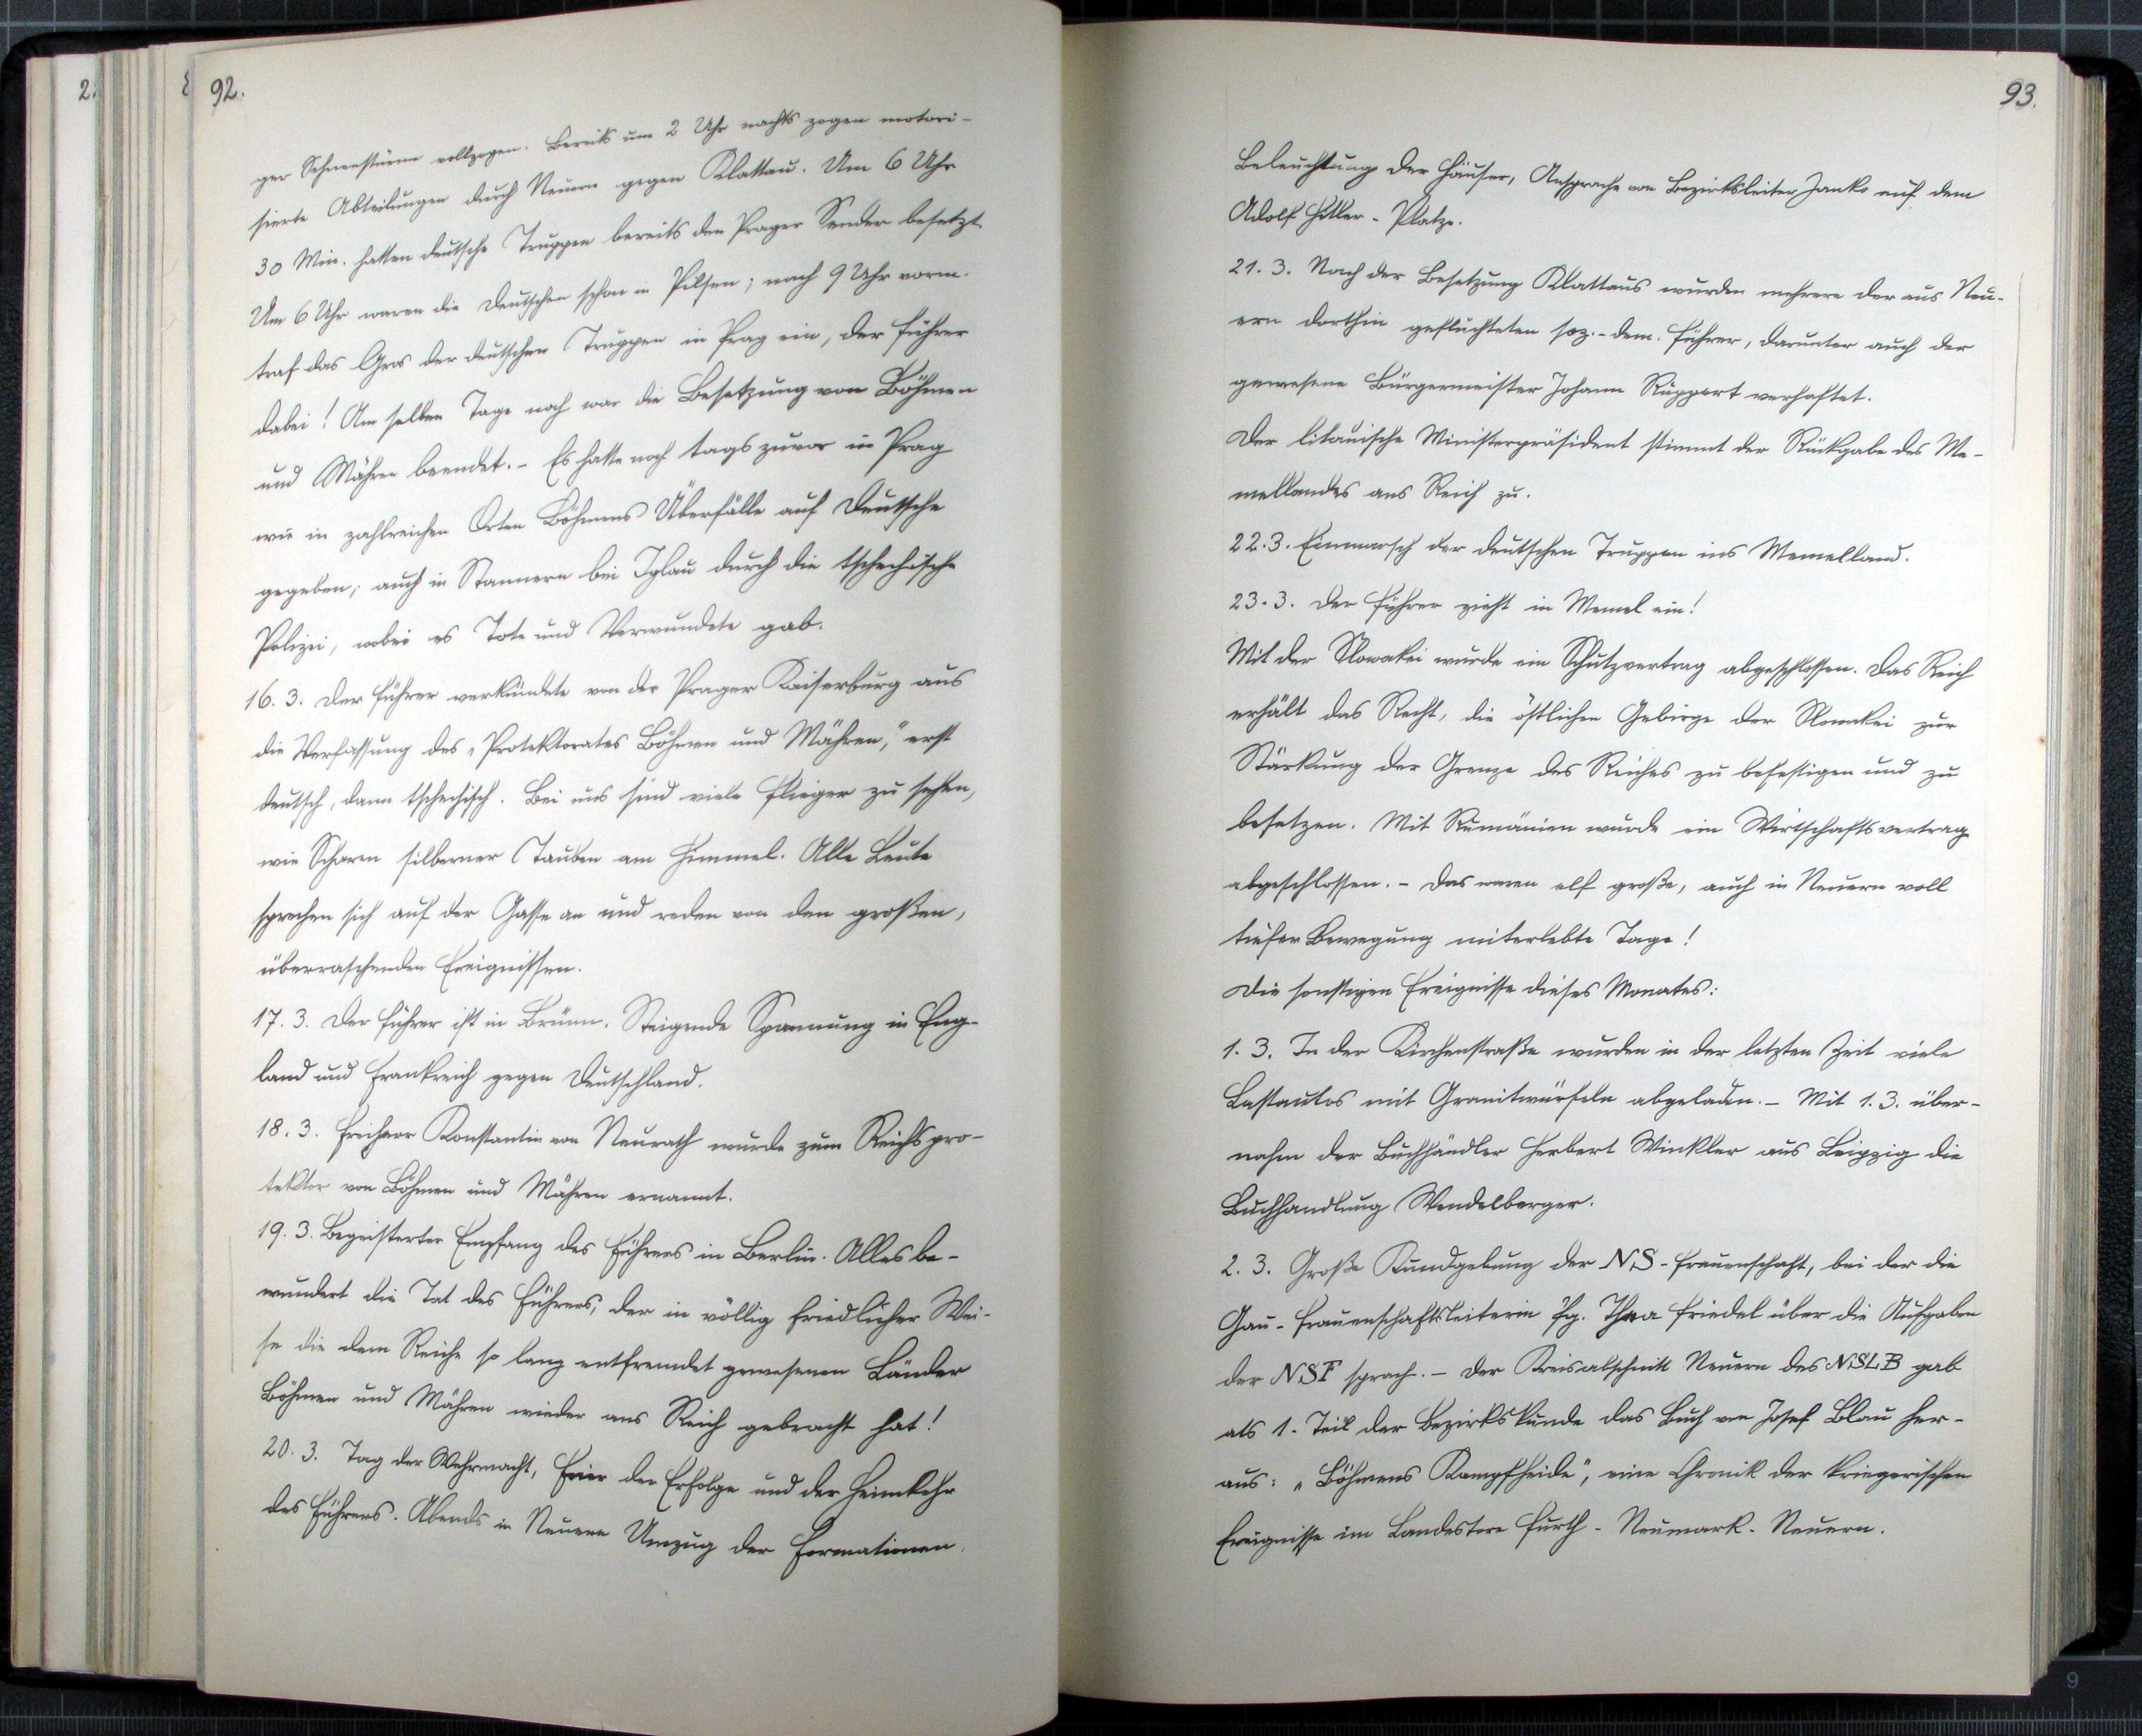 92.
ger Schneestürme vollzogen. Bereits um 2 Uhr nachts zogen motori-
sierte Abteilungen durch Neuern gegen Klattau. Um 6 Uhr
30 Min. hatten deutsche Truppen bereits den Prager Sender besetzt.
Um 6 Uhr waren die Deutschen schon in Pilsen; nach 9 Uhr vorm.
traf das Gros der deutschen Truppen in Prag ein, der Führer
dabei! Am selben Tage noch war die Besetzung von Böhmen
und Mähren beendet. - Es hatte noch tags zuvor in Prag
wie in zahlreichen Orten Böhmens Überfälle auf Deutsche
gegeben; auch in Stannern bei Iglau durch die tschechische
Polizei, wobei es Tote und Verwundete gab.
16. 3. Der Führer verkündete von der Prager Kaiserburg aus
die Verfassung des „Protektorates Böhmen und Mähren,“ erst
deutsch, dann tschechisch. Bei uns sind viele Flieger zu sehen,
wie Scharen silberner Tauben am Himmel. Alle Leute
sprechen sich auf der Gasse an und reden von den großen,
überraschenden Ereignissen.
17. 3. Der Führer ist in Brünn. Steigende Spannung in Eng-
land und Frankreich gegen Deutschland.
18. 3. Freiherr Konstantin von Neurath wurde zum Reichspro-
tektor von Böhmen und Mähren ernannt.
19. 3. Begeisterter Empfang des Führers in Berlin. Alles be-
wundert die Tat des Führers, der in völlig friedlicher Wei-
se die dem Reiche so lang entfremdet gewesenen Länder
Böhmen und Mähren wieder ans Reich gebracht hat!
20. 3. Tag der Wehrmacht, Feier der Erfolge und der Heimkehr
des Führers. Abends in Neuern Umzug der Formationen.
93.
Beleuchtung der Häuser, Ansprache von Bezirksleiter Janko auf dem
Adolf Hitler-Platze.
21. 3. Nach der Besetzung Klattaus wurden mehrere der aus Neu-
ern dorthin geflüchteten soz.-dem. Führer, darunter auch der
gewesene Bürgermeister Johann Ruppert verhaftet.
Der litauische Ministerpräsident stimmt der Rückgabe des Me-
mellandes ans Reich zu.
22. 3. Einmarsch der deutschen Truppen ins Memelland.
23. 3. Der Führer zieht in Memel ein!
Mit der Slowakei wurde ein Schutzvertrag abgeschlossen. Das Reich
erhält das Recht, die östlichen Gebirge der Slowakei zur
Stärkung der Grenze des Reiches zu befestigen und zu
besetzen. Mit Rumänien wurde ein Wirtschaftsvertrag
abgeschlossen. - Das waren elf große, auch in Neuern voll
tiefer Bewegung miterlebte Tage!
Die sonstigen Ereignisse dieses Monates:
1. 3. In der Kirchenstraße wurden in der letzten Zeit viele
Lastautos mit Granitwürfeln abgeladen. - Mit 1. 3. über-
nahm der Buchhändler Herbert Winkler aus Leipzig die
Buchhandlung Wendelberger.
2. 3. Große Kundgebung der NS-Frauenschaft, bei der die
Gau-Frauenschaftsleiterin Pg. Thea Friedel über die Aufgaben
der NSF sprach. - Der Kreisabschnitt Neuern des NSLB gab
als 1. Teil der Bezirkskunde das Buch von Josef Blau her-
aus: „Böhmens Kampfheide“, eine Chronik der kriegerischen
Ereignisse im Landestore Furth-Neumark-Neuern.